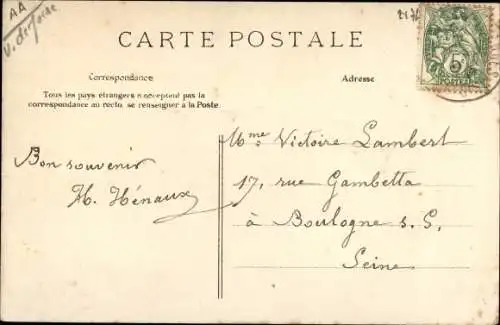 AA
V. de foire
CARTE POSTALE
Correspondance
Tous les pays étrangers n'acceptent pas la
correspondance au recto, se renseigner à la Poste.
Adresse
Bon souvenir
H. Hénaux
Mme Victoire Lambert
17, rue Gambetta
à Boulogne s. S.
Seine
5
POSTES